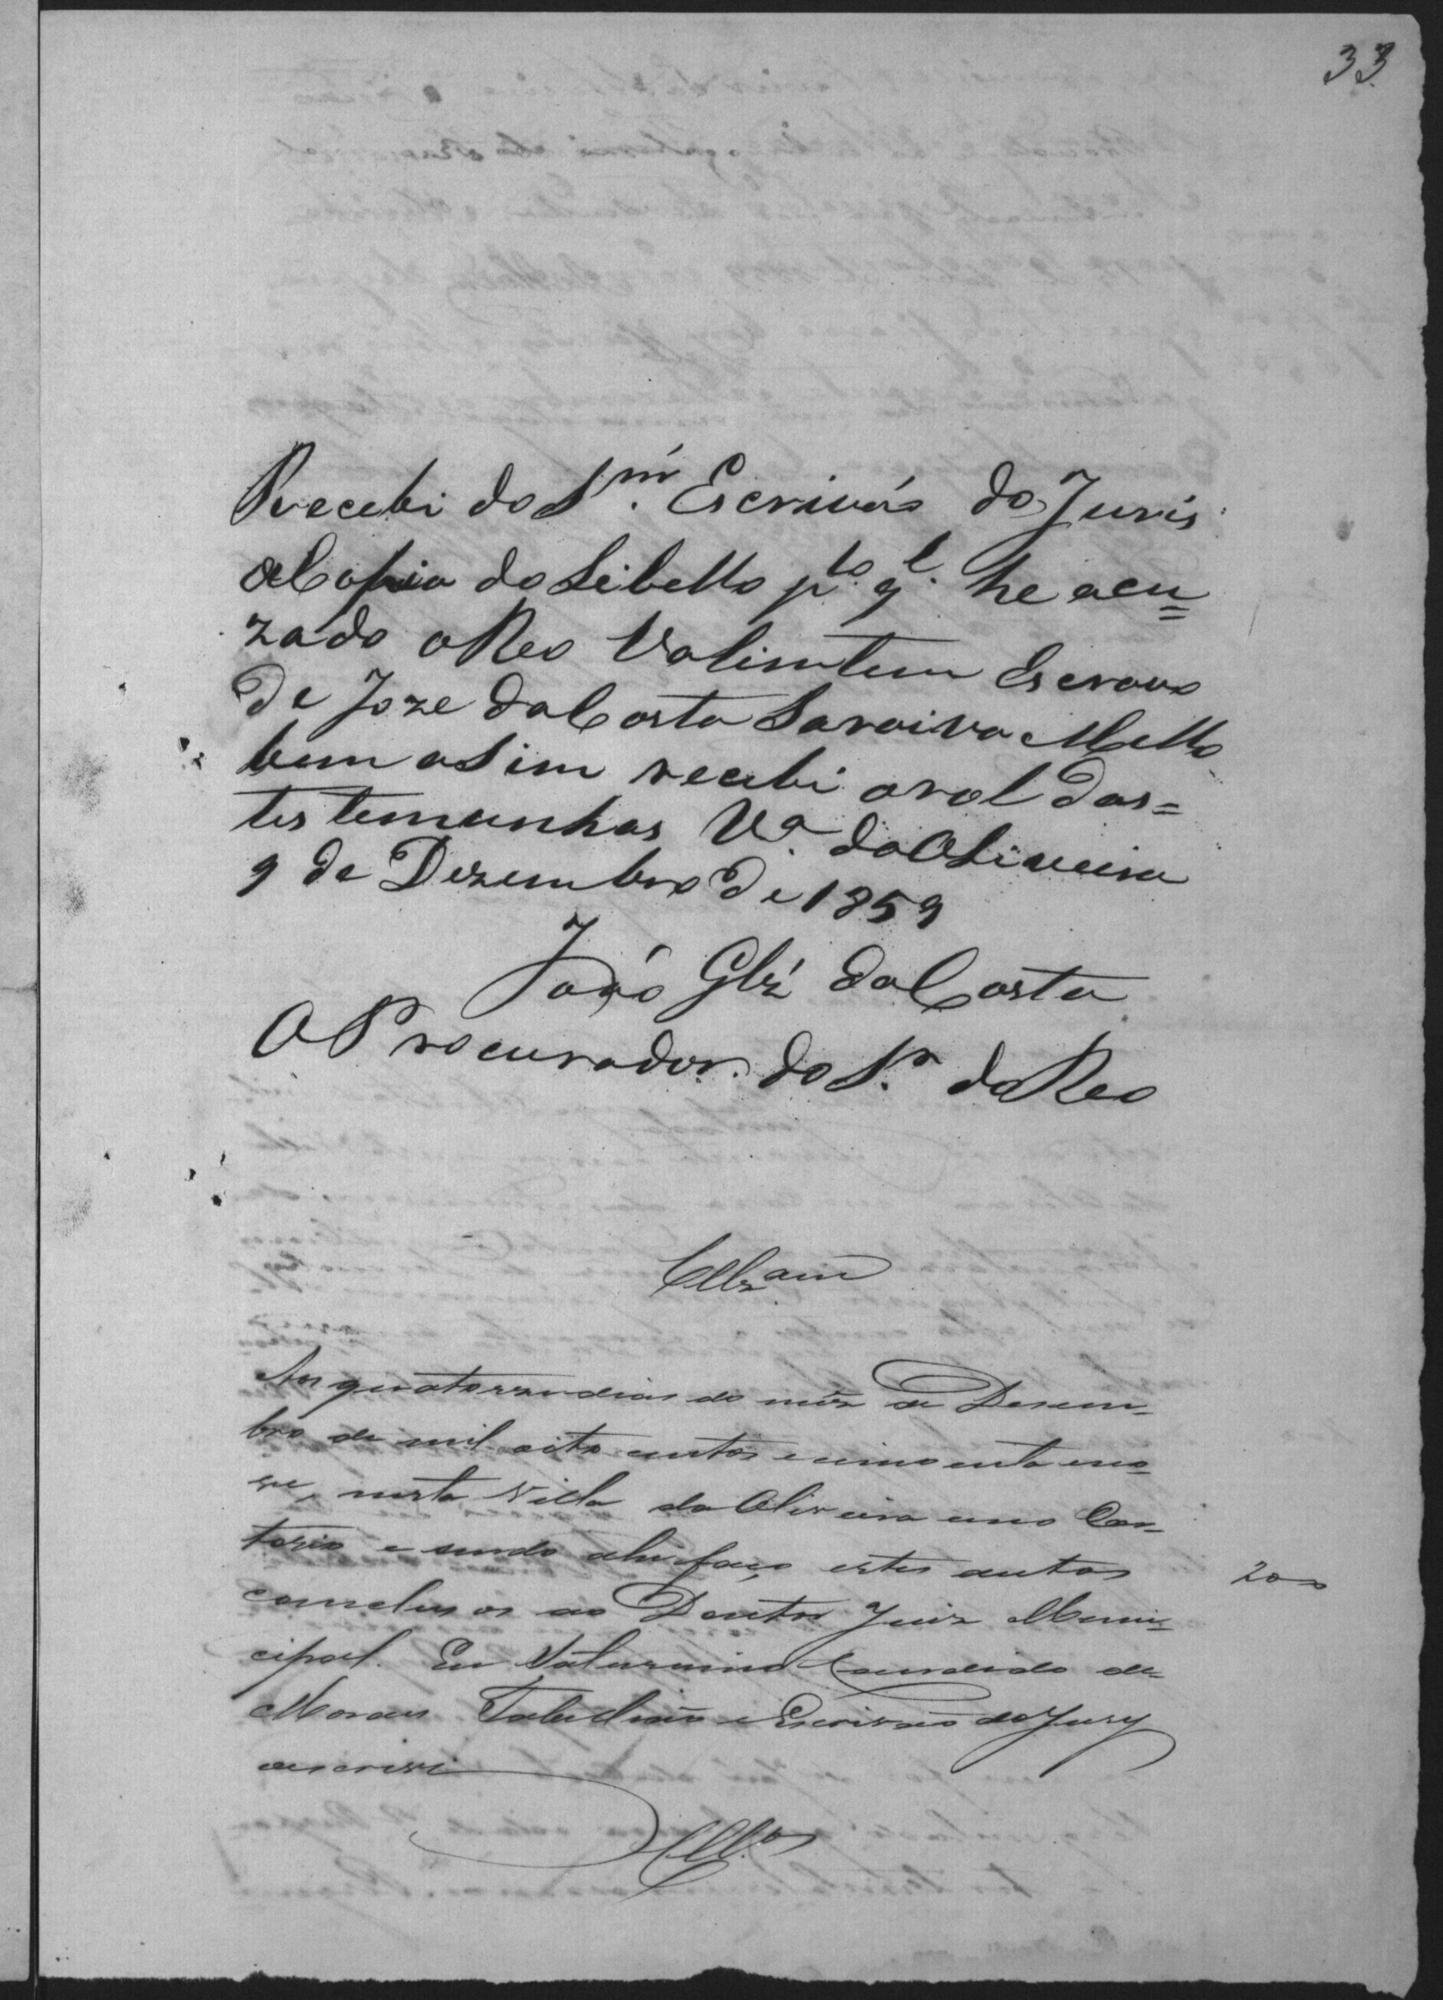 33
Recebi do Snr. Escrivão do Juris
a Copia do Libello plo. ql. he acu=
zado o Reo Valimtem Escravo
de Joze da Costa Saraiva Mello
bem asim recebi o rol das=
testemunhas Va. da Oliveira
9 de Dezembro de 1859
João Glz' da Costa
O Procurador do Sr. do Reo
Clzam
Aos quatorze dias do mez de Desem-
bro de mil oito centos e cincoenta eno-
ve, nesta Villa da Oliveira emo Car-
torio e sendo ahi faço estes autos
conclusos ao Doutor Juiz Muni-
cipal. Eu Saturnino Candido de
Moraes Tabelião e Escrivão do Jury
oescrevi
Cllos
200